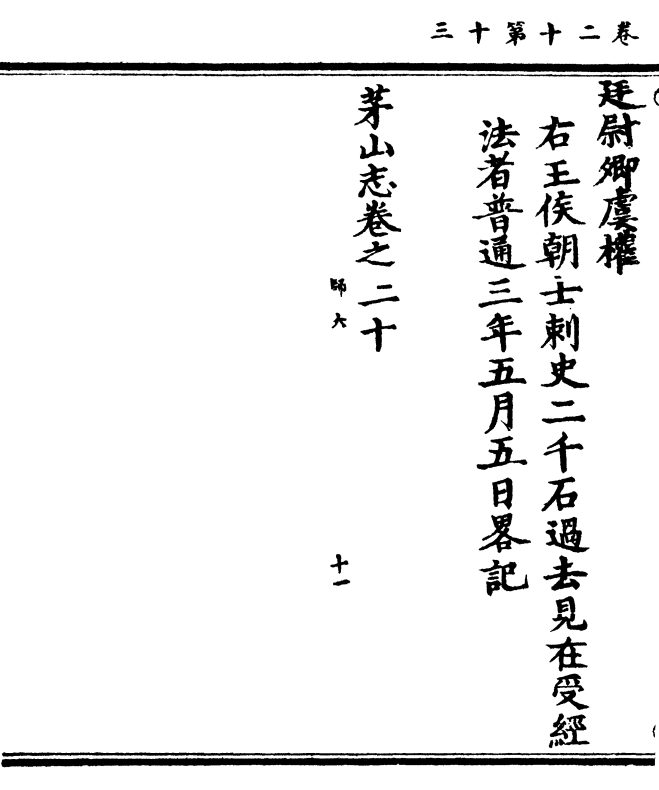 卷二十第十三
廷尉卿虞權
右王侯朝士刺史二千石過去見在受經
法者普通三年五月五日畧記
茅山志卷之二十
師六
十一